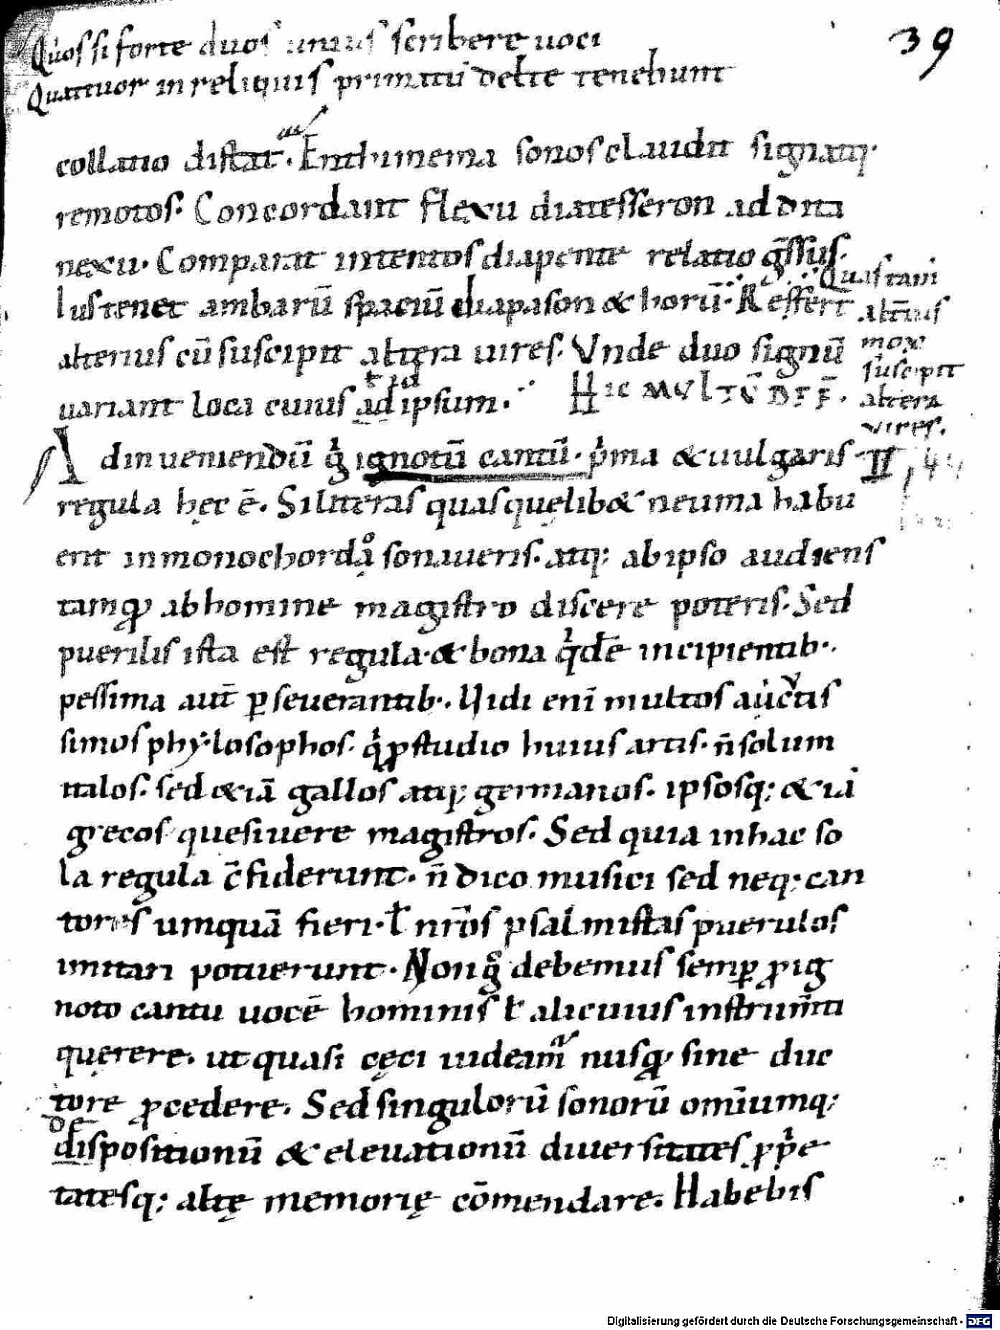 Quos si forte duos unius scribere uoci
Quattuor in reliquis primatū debte tenebunt
39
collatio distat. Enthimema sonos claudit signatq;
remotos. Concordant flexu diatesseron addita
nexu. Comparat intentos diapente relatio g̅ssus.
lus tenet ambarū spaciū diapason & horū. Reffert
alterius cū suscipit altera uires. Vnde duo signū
uariant loca cuius ad ipsum.
Quas tam
alt̄ius
mox
suscipit
altera
vires.
Hic mvltv̄ d̄ff̄.
Ad inueniendū g̊ ignotū cantū. p̍ma & uulgaris
regula hęc ē. Si litteras quas quęlib& neuma habu
erit in monochordo sonaueris. atq; ab ipso audiens
tamꝙ ab homine magistro discere poteris. Sed
puerilis ista est regula. & bona q̍dē incipientib.
pessima aut̄ ꝑseuerantib. Uidi eni̅ multos acutis
simos phylosophos. q̍ ꝓ studio huius artis. n̄ solum
italos. sed & iā gallos atq; germanos. ipsosq; & iā
grecos quesiuere magistros. Sed quia in hac so
la regula c̄fiderunt. n̄ dico musici sed neq; can
tores umquā fieri. ł nr̄os psalmistas puerulos
imitari potuerunt. Non g̊ debemus semꝑ ꝓ ig
noto cantu uocē hominis ł alicuius instrum̄ti
querere. ut quasi cęci uideam̄ nusꝙ sine duc
tore ꝓcedere. Sed singulorū sonorū omīumq;
de
dispositionū & eleuationū diuersitates ꝓp̍e
tatesq; altę memorię cōmendare. Habebis
Digitalisierung gefördert durch die Deutsche Forschungsgemeinschaft - DFG